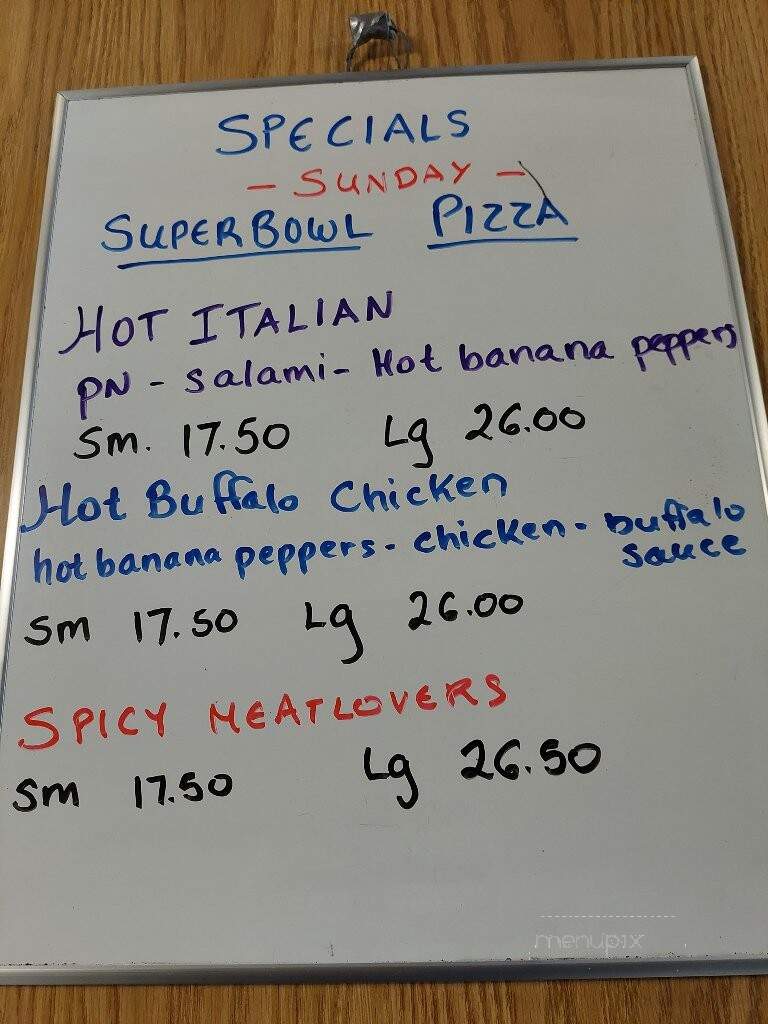 SPECIALS
- SUNDAY -
SUPERBOWL PIZZA
HOT ITALIAN
PN - Salami - Hot banana peppers
Sm. 17.50 Lg 26.00
Hot Buffalo Chicken
hot banana peppers - chicken - buffalo
sauce
Sm 17.50 Lg 26.00
SPICY MEATLOVERS
Sm 17.50 Lg 26.50
menupix